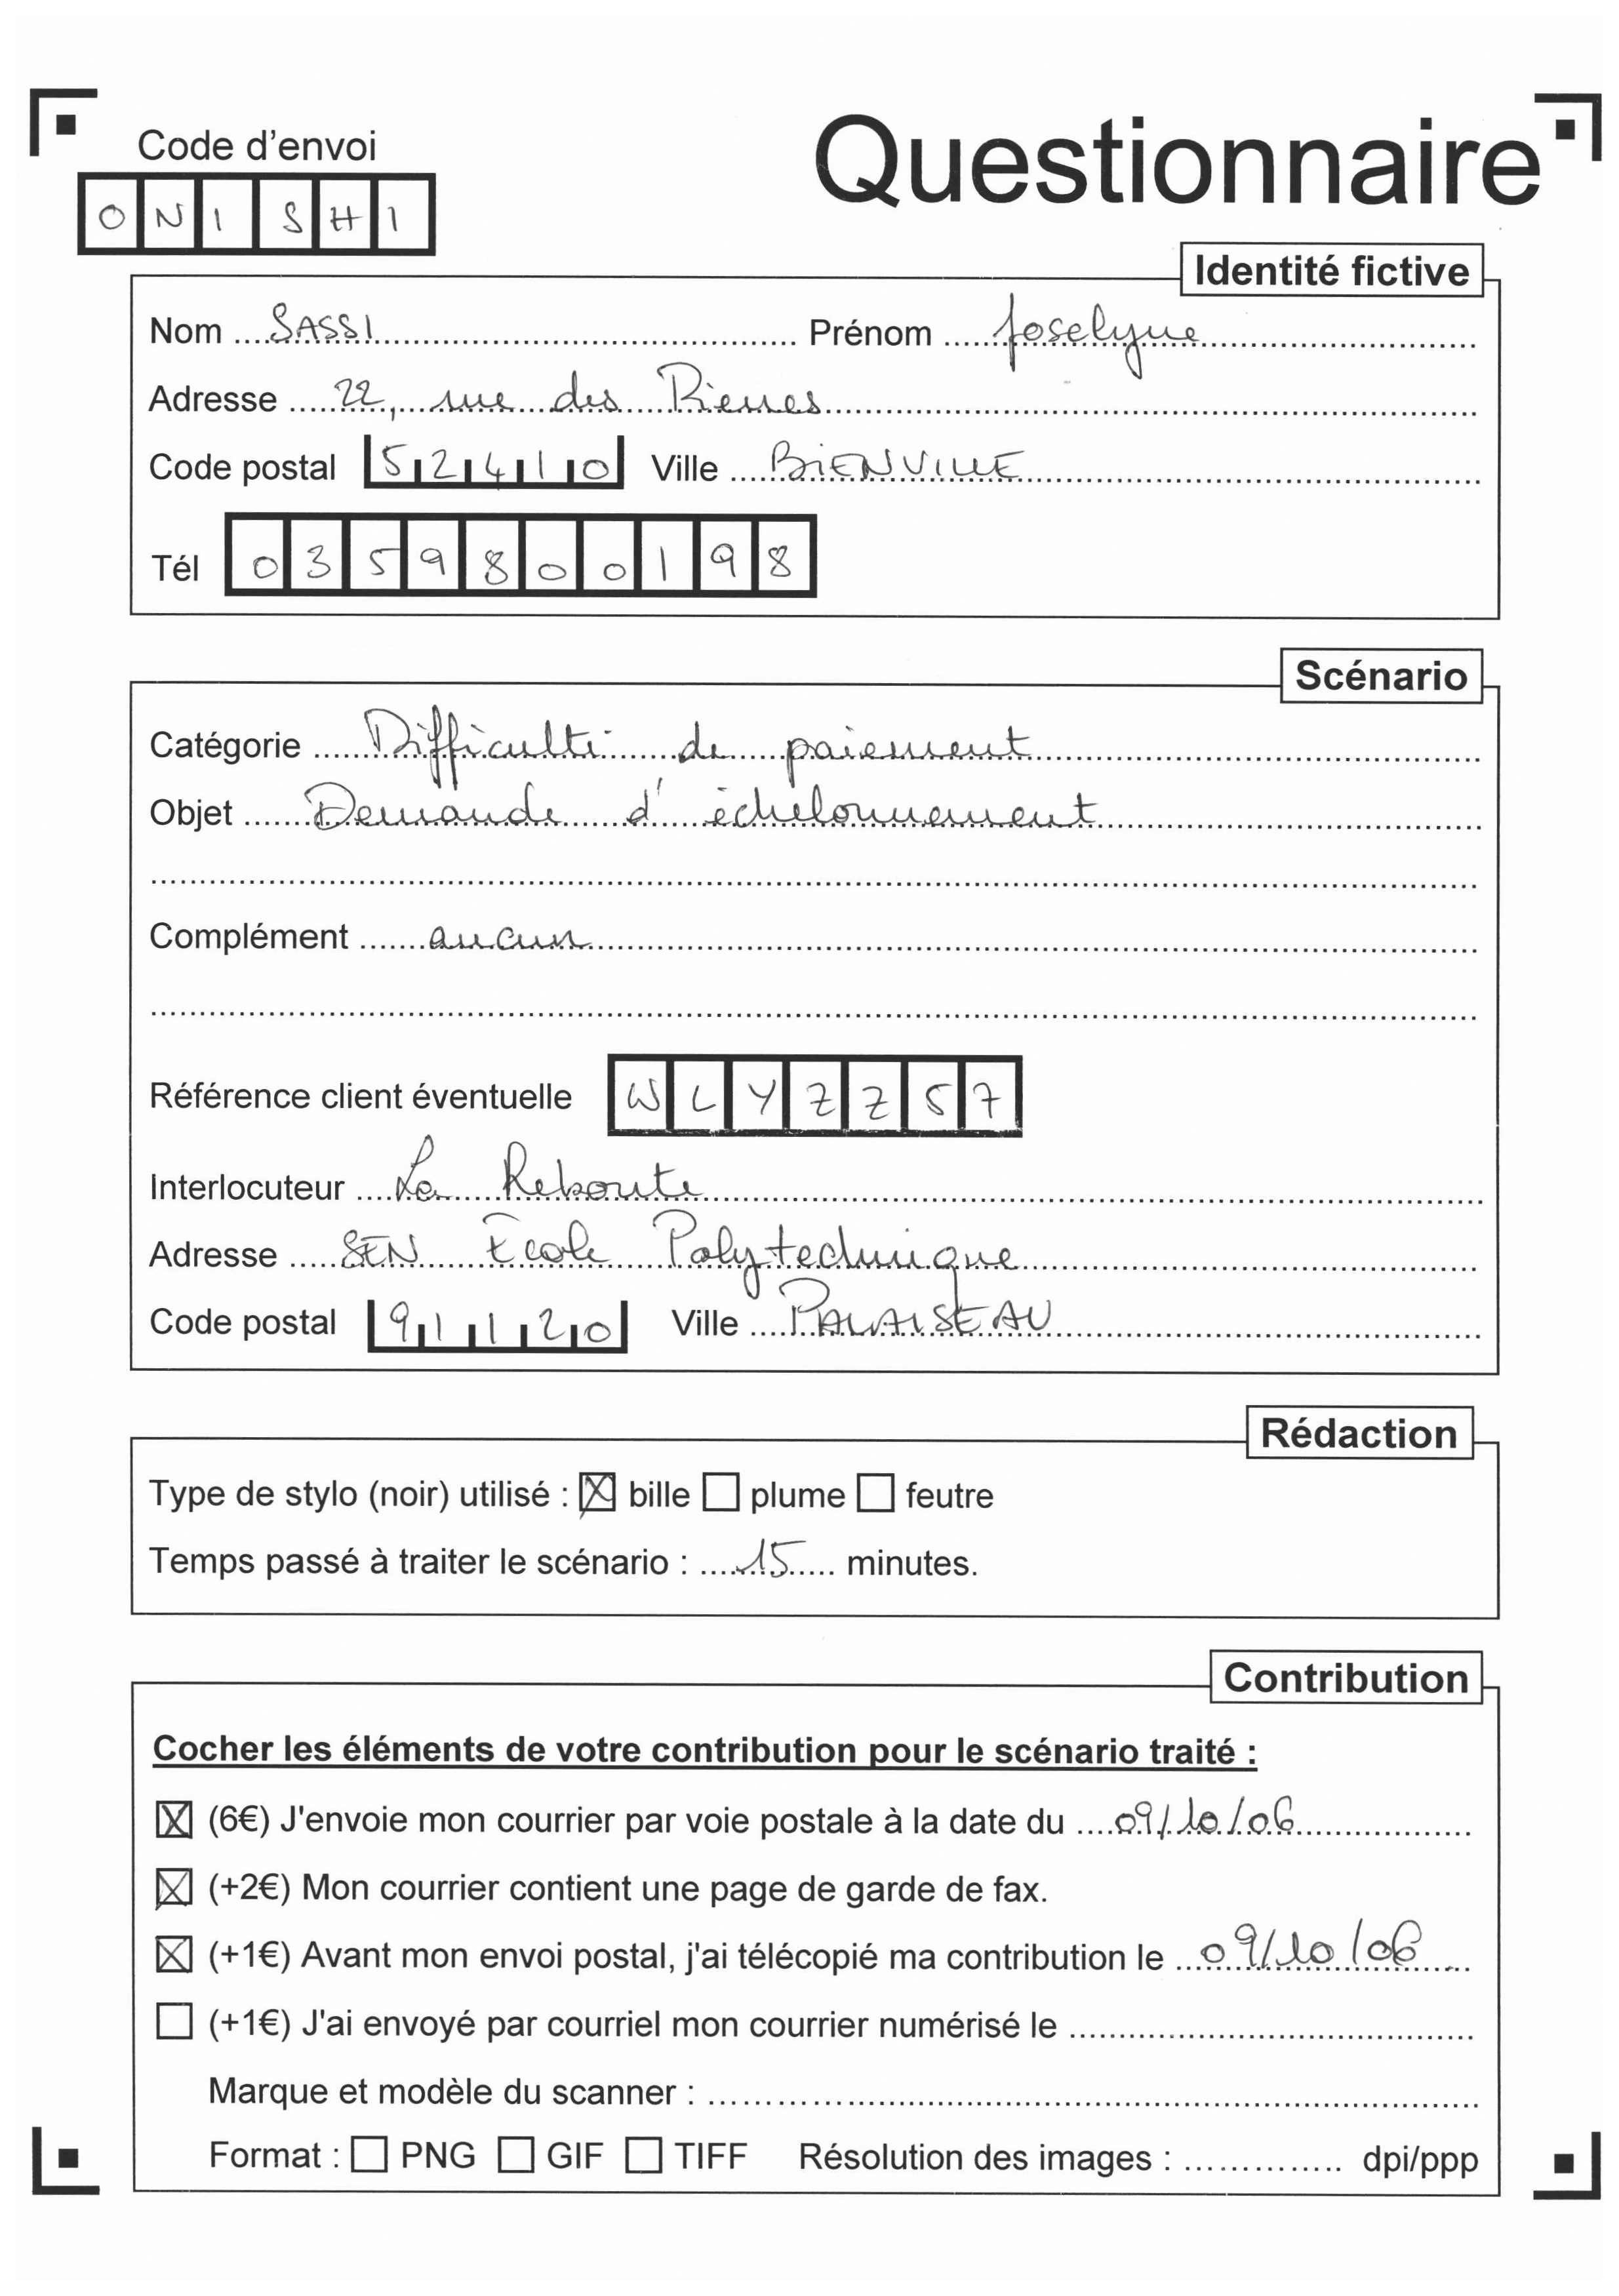 Questionnaire
Code d'envoi
ONISHI
Identité fictive
Nom SASSI Prénom Joselyne
Adresse 22, rue des Pierres
Code postal 52410 Ville BIENVILLE
Tél 0359800198
Scénario
Catégorie Difficulté de paiement
Objet Demande d'échelonnement
Complément aucun
Référence client éventuelle WLYZZ57
Interlocuteur La Reboute
Adresse SEN Ecole Polytechnique
Code postal 91120 Ville PALAISEAU
Rédaction
Type de stylo (noir) utilisé : ☒ bille ☐ plume ☐ feutre
Temps passé à traiter le scénario : 15 minutes.
Contribution
Cocher les éléments de votre contribution pour le scénario traité :
☒ (6€) J'envoie mon courrier par voie postale à la date du 09/10/06
☒ (+2€) Mon courrier contient une page de garde de fax.
☒ (+1€) Avant mon envoi postal, j'ai télécopié ma contribution le 09/10/06
☐ (+1€) J'ai envoyé par courriel mon courrier numérisé le
Marque et modèle du scanner :
Format : ☐ PNG ☐ GIF ☐ TIFF Résolution des images : dpi/ppp